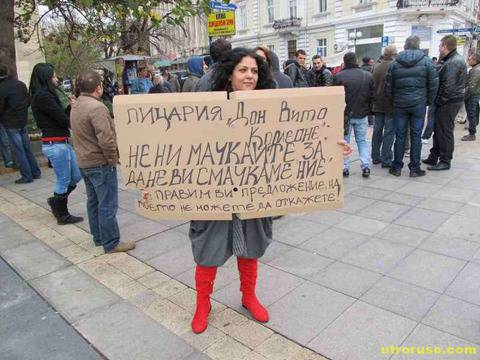 ПИЦАРИЯ „ДОН ВИТО
КОРЛЕОНЕ"
„НЕ НИ МАЧКАЙТЕ ЗА
ДА НЕ ВИ СМАЧКАМЕ НИЕ
ПРАВИМ ВИ ПРЕДЛОЖЕНИЕ, НА
КОЕТО НЕ МОЖЕТЕ ДА ОТКАЖЕТЕ!
utroruse.com